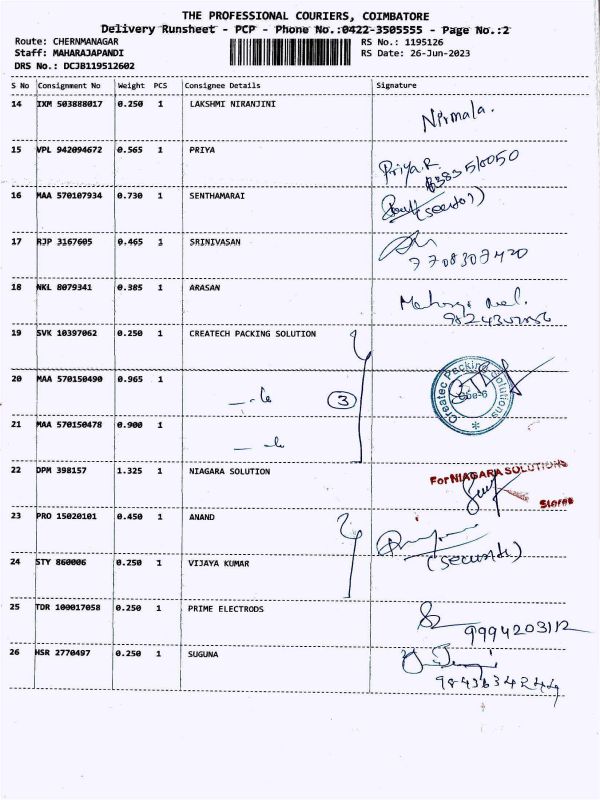 THE PROFESSIONAL COURIERS, COIMBATORE
Delivery Runsheet - PCP - Phone No.:0422-3505555 - Page No.:2
Route: CHERNMANAGAR RS No.: 1195126
Staff: MAHARAJAPANDI RS Date: 26-Jun-2023
DRS No.: DCJB119512602
S No Consignment No Weight PCS Consignee Details Signature
14 IXM 503888017 0.250 1 LAKSHMI NIRANJINI Nirmala.
15 VPL 942094672 0.565 1 PRIYA Priya.R.
16 MAA 570107934 0.730 1 SENTHAMARAI
17 RJP 3167605 0.465 1 SRINIVASAN
7708307420
18 NKL 8079341 0.385 1 ARASAN
19 SVK 10397062 0.250 1 CREATECH PACKING SOLUTION
20 MAA 570150490 0.965 1
3
Createc Packing Solutions
Cbe-6
21 MAA 570150478 0.900 1
22 DPM 398157 1.325 1 NIAGARA SOLUTION For NIAGARA SOLUTIONS
Stores
23 PRO 15020101 0.450 1 ANAND
24 STY 860006 0.250 1 VIJAYA KUMAR (security)
25 TDR 100017058 0.250 1 PRIME ELECTRODS
9994203112
26 HSR 2770497 0.250 1 SUGUNA